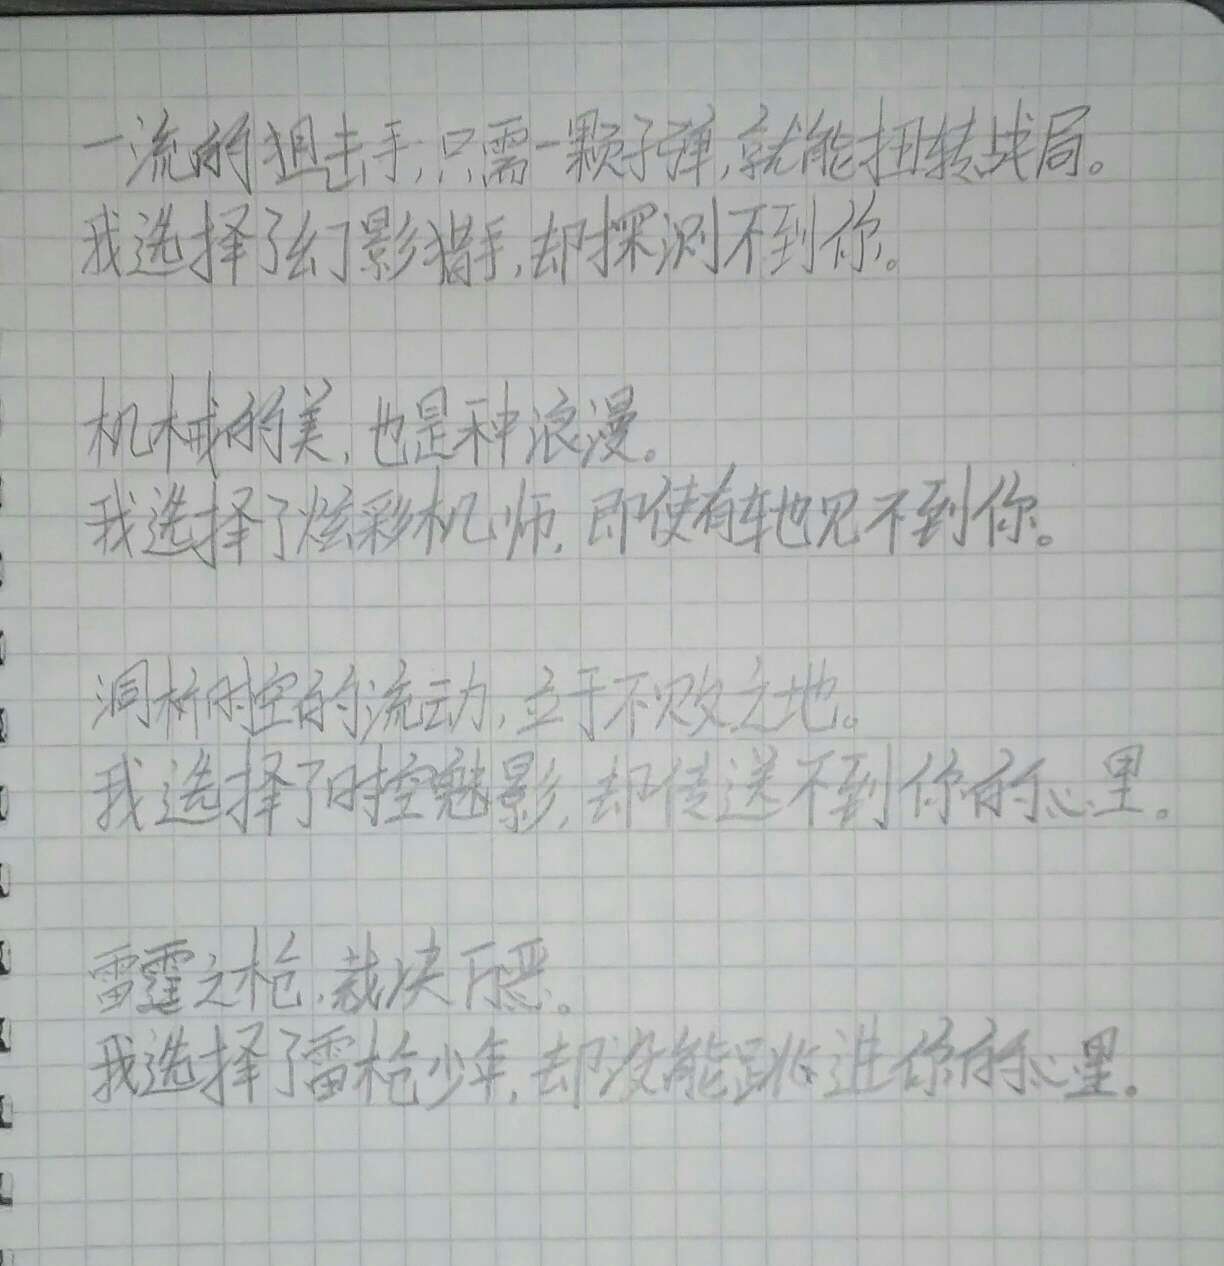 一流的狙击手,只需一颗子弹,就能扭转战局。
我选择了幻影猎手,却探测不到你。
机械的美,也是种浪漫。
我选择了炫彩机师,即使有车也见不到你。
洞析时空的流动,立于不败之地。
我选择了时空魅影,却传送不到你的心里。
雷霆之枪,裁决万恶。
我选择了雷枪少年,却没能跳进你的心里。